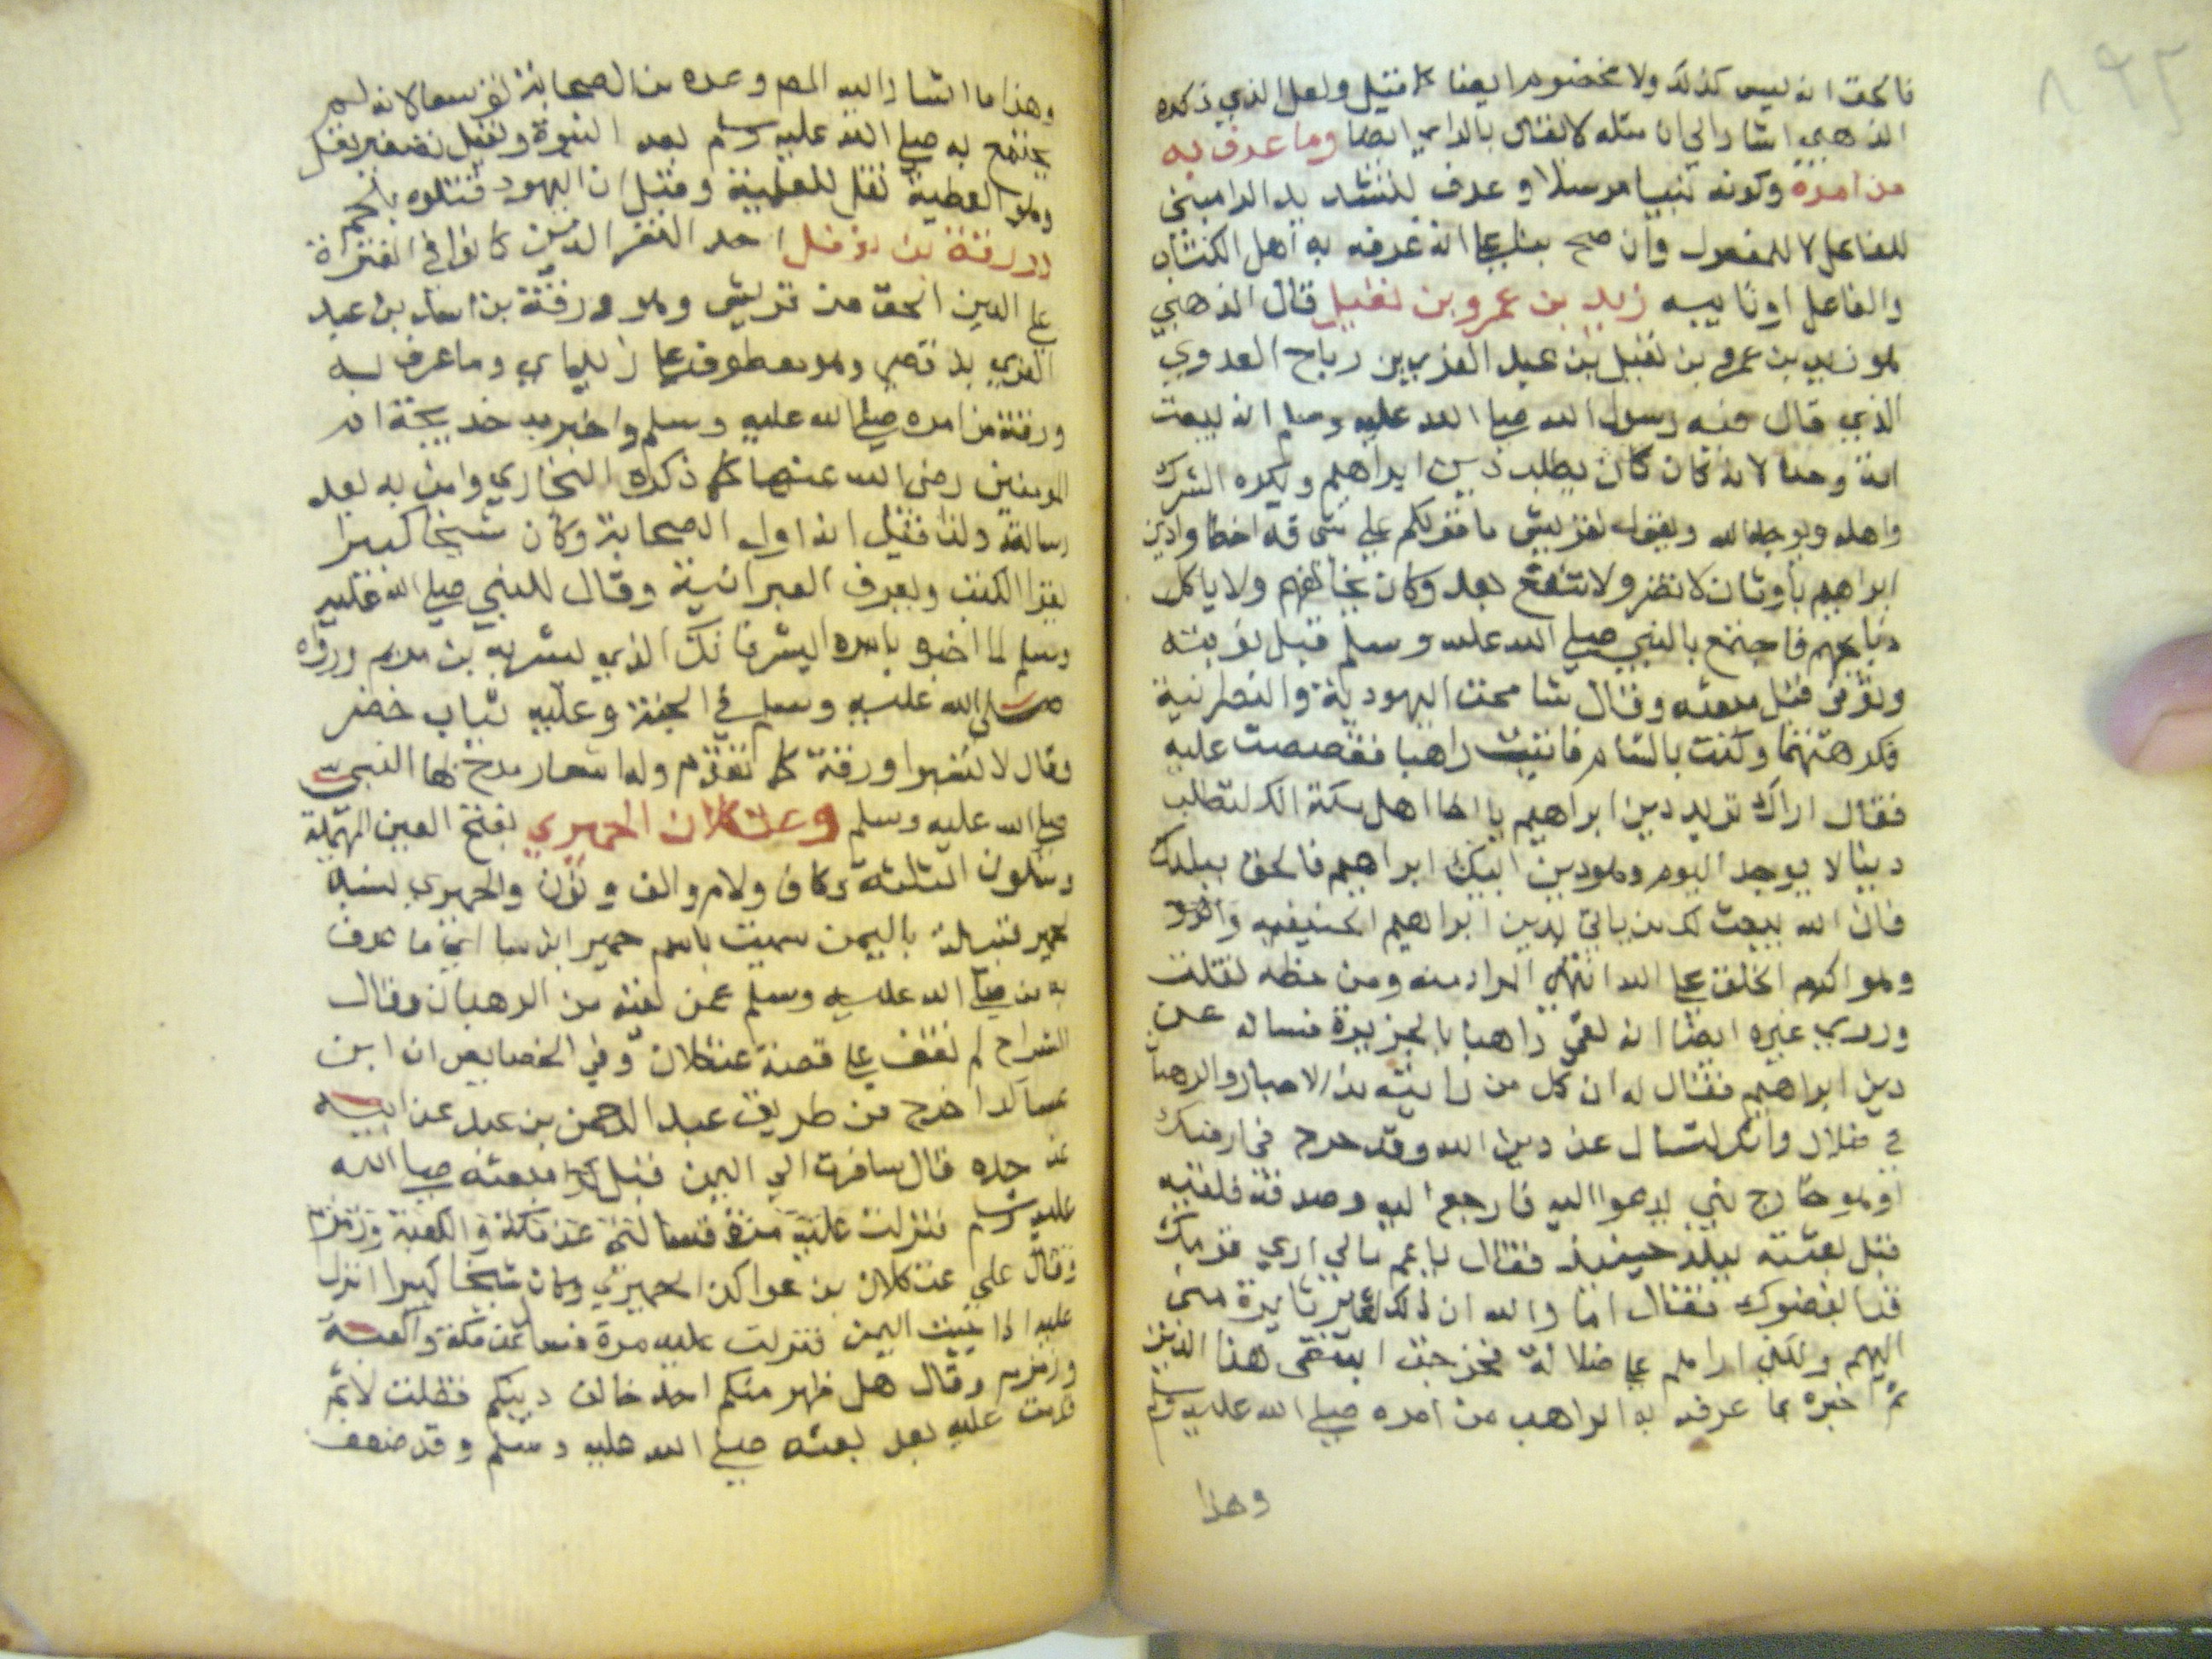 فالحق انه ليس كذلك ولا مخضرم ايضا كما قيل ولعل الذي ذكره
الذهبي اشار الي ان مثله لا يقال بالراي ايضا وما عرف به
من امره وكونه نبيا مرسلا وعرف للتشديد الرا مبني
للفاعل لا للمفعول وان صح بناء علي انه عرفه به اهل الكتاب
والفاعل او نايبه زيد بن عمرو بن نفيل قال الذهبي
هو زيد بن عمرو بن نفيل بن عبد العزي بن رباح العدوي
الذي قال فيه رسول الله صلي الله عليه وسلم انه يبعث
امة وحده لانه كان كان يطلب دين ابراهيم ويكره الشرك
واهله ويوحد الله ويقول لقريش ما فيكم علي شي قد اخطاوا دين
ابراهيم باوثان لا تضر ولا تنفع بعد وكان يخالفهم ولا ياكل
ذبايحهم فاجتمع بالنبي صلي الله عليه وسلم قبل نبوته
وتوفي قبل مبعثه وقال شاممت اليهودية والنصرانية
فكرهتهما وكنت بالشام فاتيت راهبا فقصصت عليه
فقال اراك تريد دين ابراهيم يا اخا اهل مكة انك لتطلب
دينا لا يوجد اليوم وهو دين ابيك ابراهيم فالحق ببلدك
فان الله يبعث لك من ياتي بدين ابراهيم الحنيفيه
وهو اكرم الخلق علي الله انتهي المراد منه ومن خطه نقلت
وروي غيره ايضا انه لقي راهبا بالجزيرة فساله عن
دين ابراهيم فقال له ان كل من رايته من الاحبار والرهبا
في ضلال وانك لتسال عن دين الله وقد خرج في ارضك
او هو خارج نبي يدعوا اليه فارجع اليه وصدقه فلقيه
قبل بعثته ببلد حينيذ فقال يا عم مالي اري قومك
قد ابغضوك فقال اما والله ان ذلك لغير نايرة مني
اليهم ولكني اراهم علي ضلالة فخرجت ابتغي هذا الدين
ثم اخبره بما عرفه به الراهب من امره صلي الله عليه وسلم
وهذا
وهذا ما اشار اليه المص وعده من الصحابة توسعا لانه لم
يجتمع به صلي الله عليه وسلم بعد النبوة ونفيل تصغير نفل
وهو العطية نقل للعلمية وقيل ان اليهود قتلوه بلخم
وورقة بن نوفل احد النفر الذين كانوا في الفترة
علي الدين الحق من قريش وهو ورقة بن اسد بن عبد
العزي بن قصي وهو معطوف علي زيد اي وما عرف به
ورقة من امره صلي الله عليه وسلم واخبر به خديجة ام
المومنين رضي الله عنها كما ذكره البخاري وامن به بعد
رسالته ولذا فقيل انه اول الصحابة وكان شيخا كبيرا
يقرا الكتب ويعرف العبرانية وقال للنبي صلي الله عليه
وسلم لما اخبره بامره ابشر فانك الذي بشر به بن مريم وراه
صلي الله عليه وسلم في الجنة وعليه ثياب خضر
وقال لا تسبوا ورقة كما تقدم وله اشعار مدح بها النبي
صلي الله عليه وسلم وعثكلان الحميري بفتح العين المهملة
وسكون المثلثة وكاف ولام والف ونون والحميري نسبة
لحمير قبيلة باليمن سميت باسم حمير ابن سبا اي ما عرف
به من صلي الله عليه وسلم عمن لقيه من الرهبان وقال
الشراح لم نقف علي قصة عثكلان وفي الخصايص ان ابن
عساكر اخرج من طريق عبد الرحمن بن عبد عن ابيه
عن جده قال سافرت الي اليمن قبل مبعثه صلي الله
عليه وسلم فنزلت عليه مرة فسالني عن مكة والكعبة وزمزم
وقال علي عثكلان بن عواكن الحميري وكان شيخا كبيرا انزل
عليه اذا جيت اليمن فنزلت عليه مرة فسال عن مكة والكعبة
وزمزم وقال هل ظهر منكم احد خالف دينكم فقلت لا ثم
قدمت عليه بعد بعثه صلي الله عليه وسلم وقد ضعف